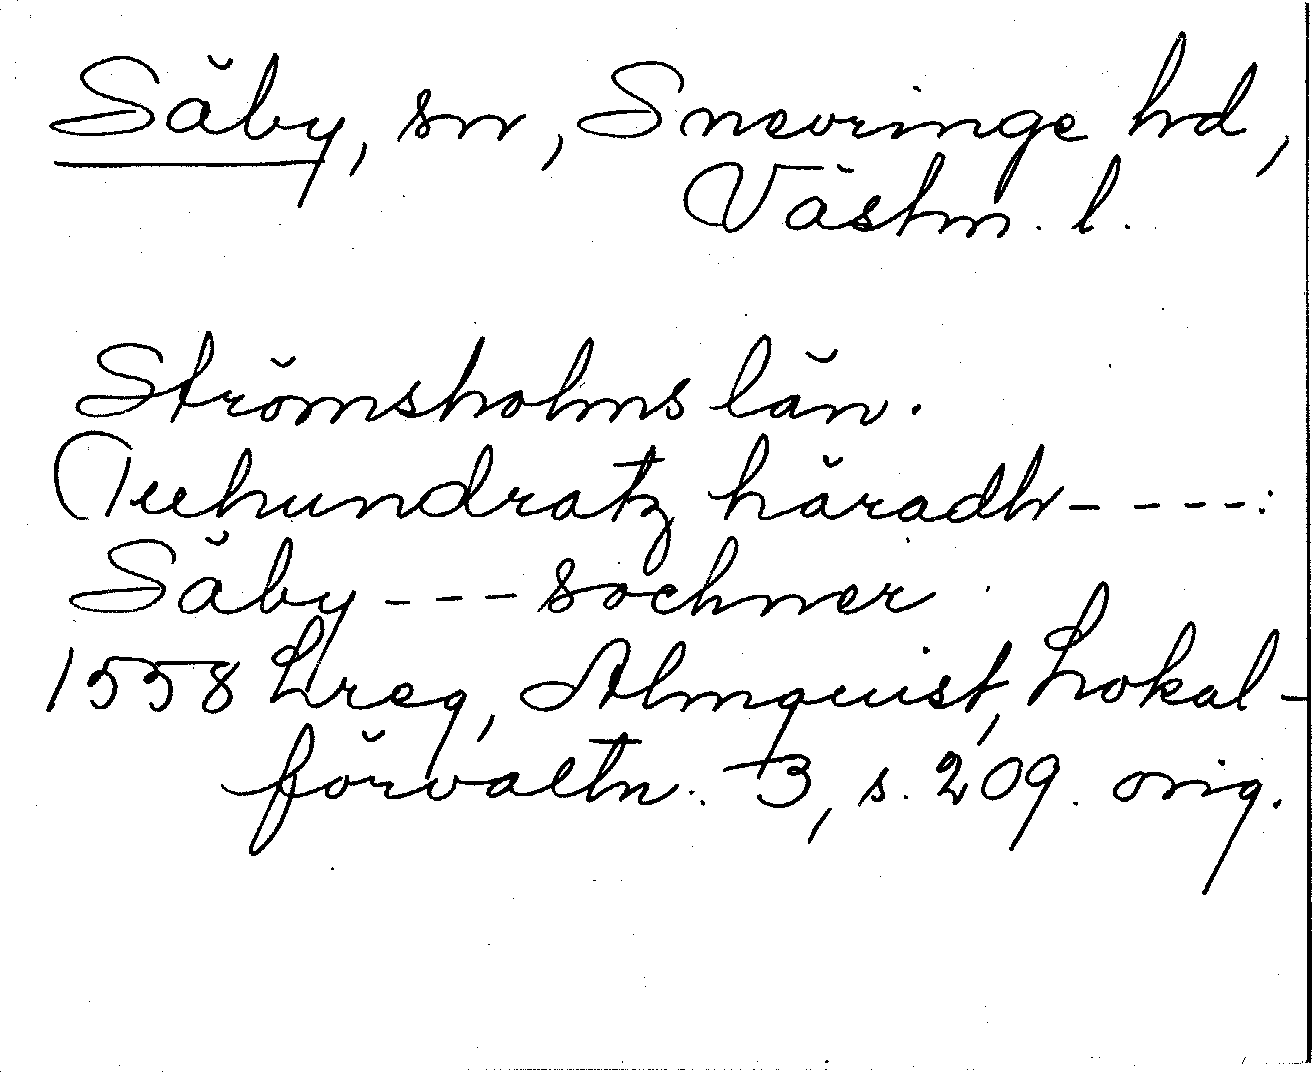 Säby, sn, Snevringe hd,
Västm. l.
Strömsholms län.
Tuhundratz häradh - - - -:
Säby - - - sochner
1558 Lreg, Almquist, Lokal-
förvaltn. 3, s. 209. orig.